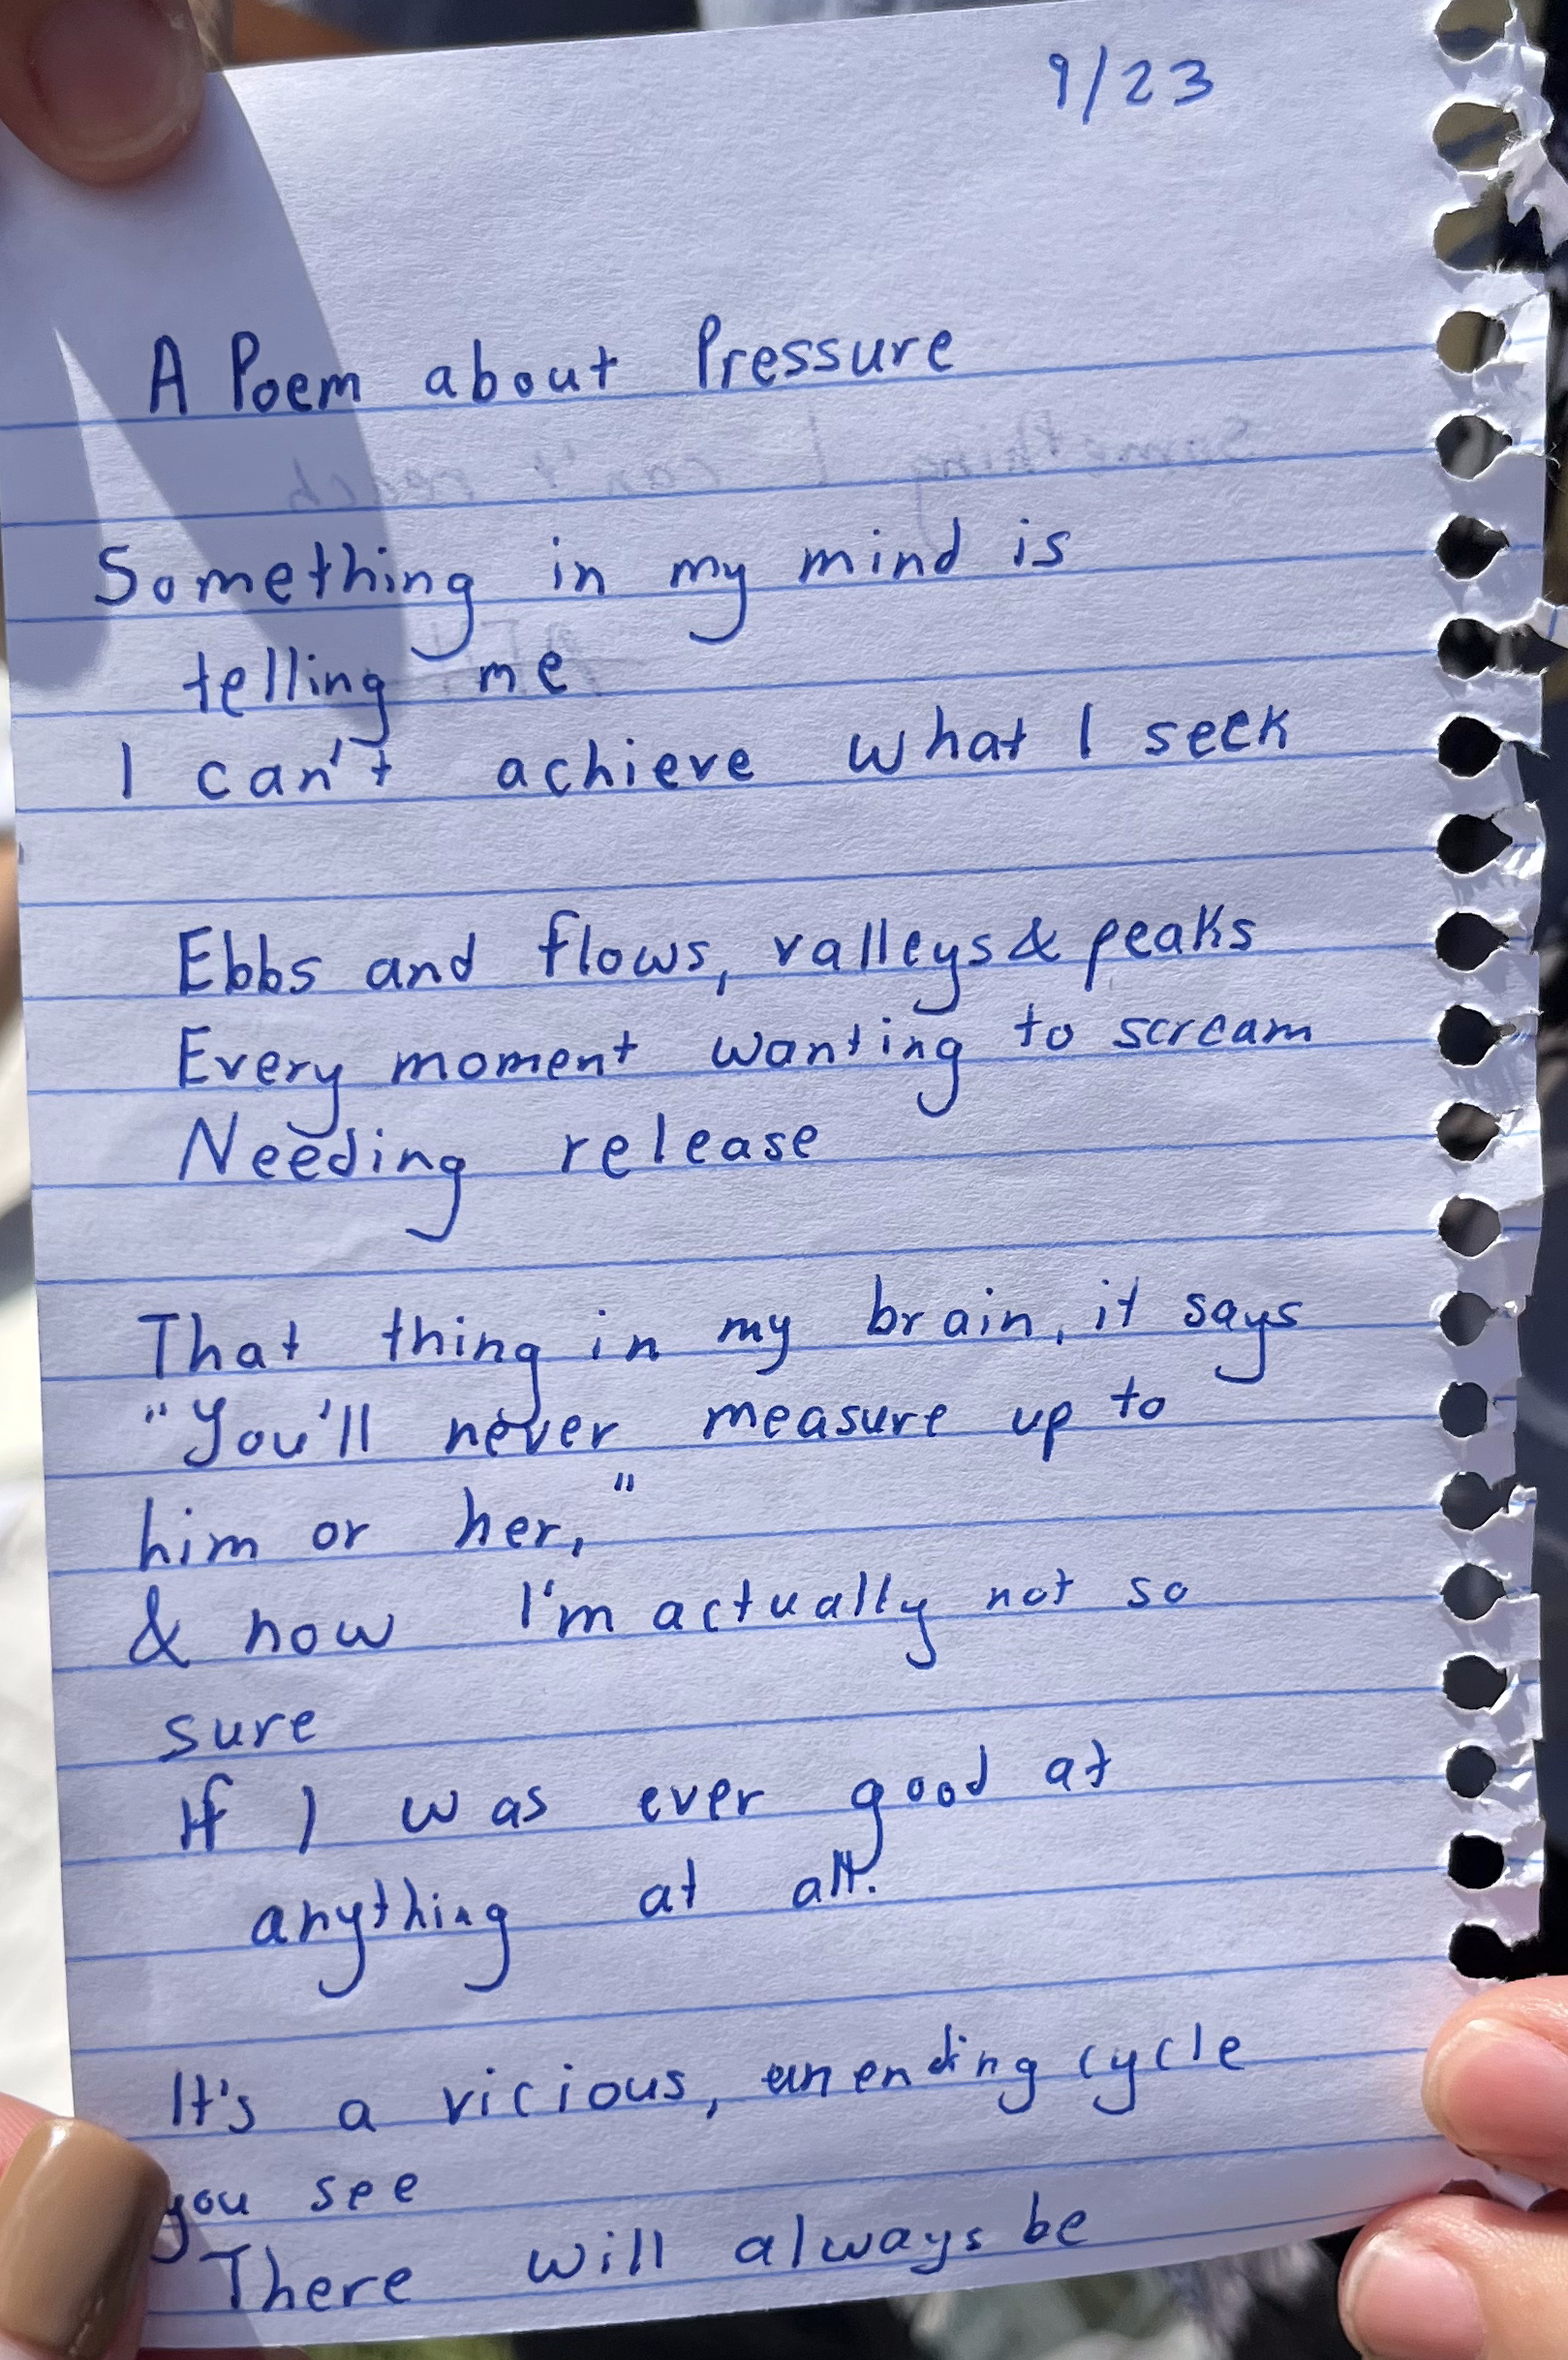 9/23
A Poem about Pressure
Something I can't reach
Something in my mind is
telling me
I can't achieve what I seek
Ebbs and flows, valleys & peaks
Every moment wanting to scream
Needing release
That thing in my brain, it says
"You'll never measure up to
him or her,"
& now I'm actually not so
sure
If I was ever good at
anything at all.
It's a vicious, unending cycle
you see
There will always be